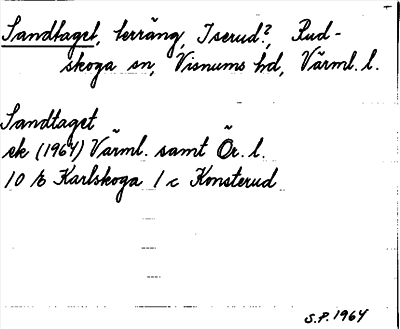 Sandtaget, terräng, Iserud?, Rud-
skoga sn, Visnums hd, Värml. l.
Sandtaget
ek (1964) Värml. samt Ör. l.
10 E Karlskoga 1 c Konsterud
S.P. 1964